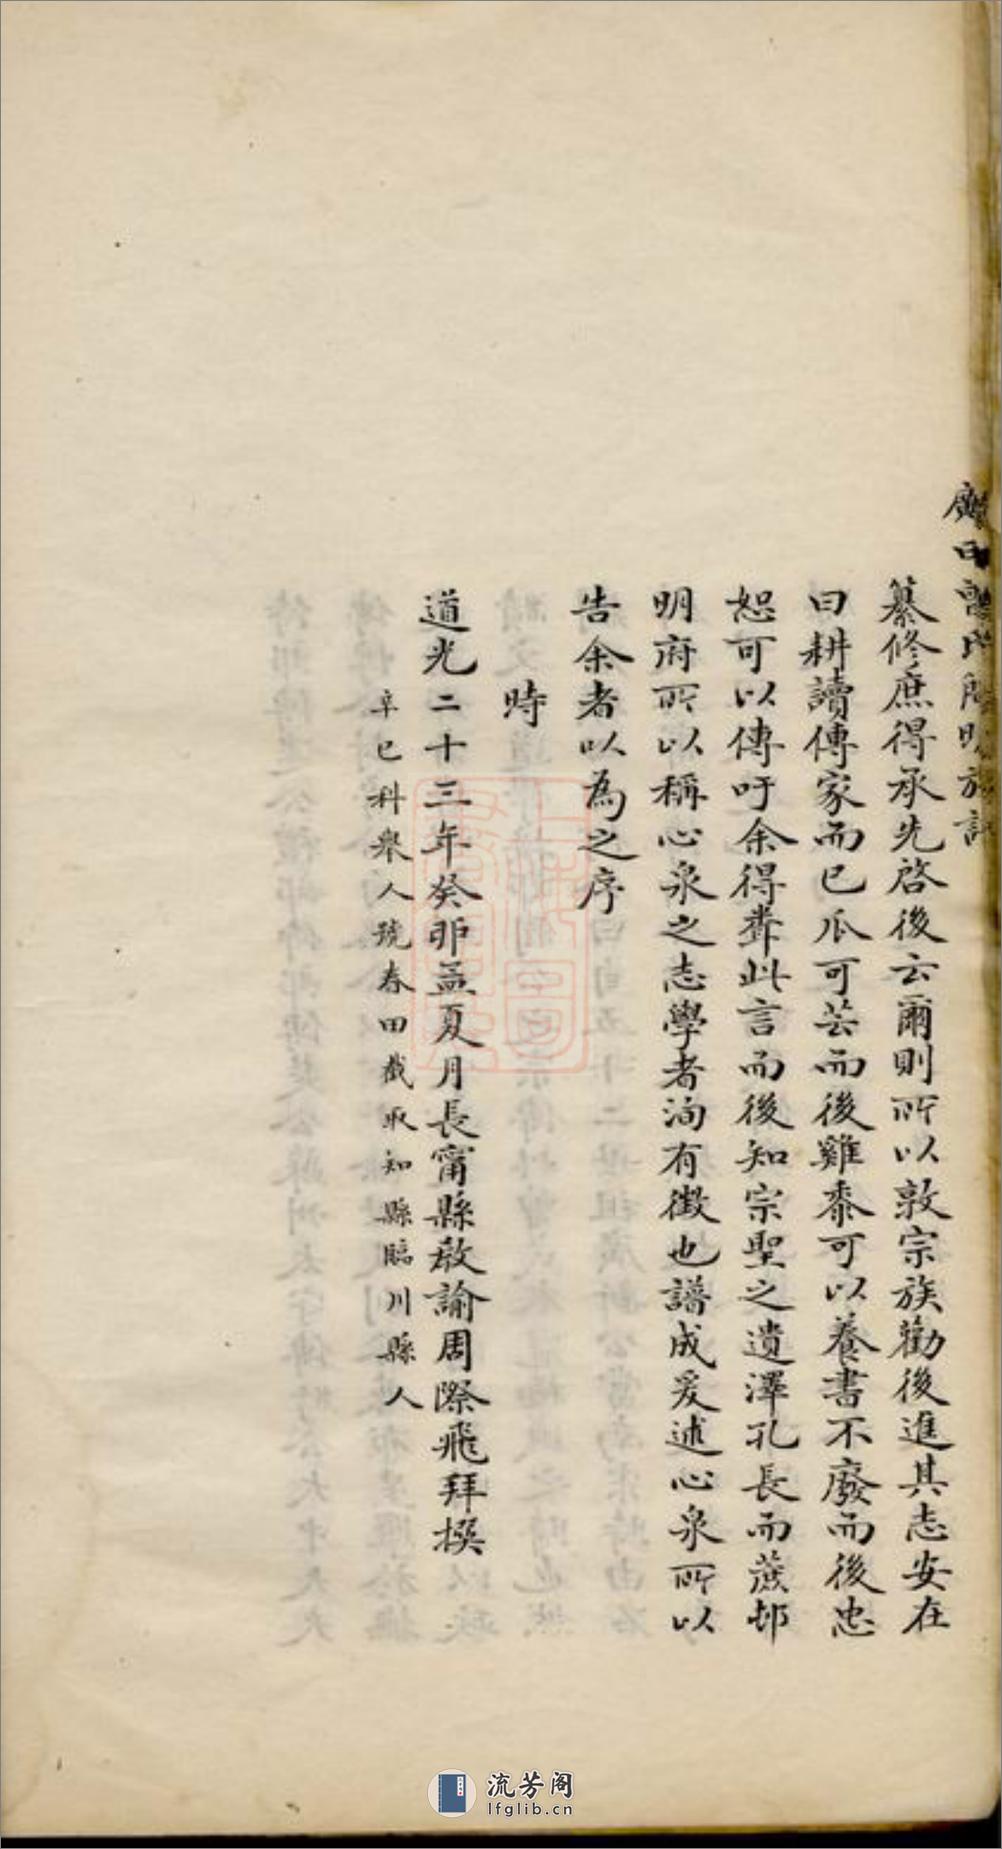 纂修庶得承先啓後云爾則所以敦宗族勸後進其志安在
曰耕讀傳家而已瓜可芸而後雞黍可以養書不廢而後忠
恕可以傳吁余得聳此言而後知宗聖之遺澤孔長而蔗邨
明府所以稱心泉之志學者洵有徵也譜成爰述心泉所以
告余者以為之序
時
道光二十三年癸卯孟夏月長甯縣敎諭周際飛拜撰
辛巳科舉人號春田截取知縣臨川縣人
流芳阁
lfglib.cn